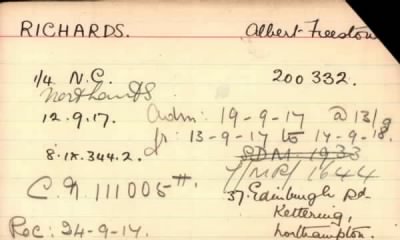 RICHARDS. Albert Freestow
1/4 N.C. 200332.
Northants
12.9.17. Adm: 19-9-17 @ 13/9
fr: 13-9-17 to 17-9-18.
8.IX.344.2. SDM 1933
/MP/ 1644
C.N. 111005
37. Edinburgh Rd.
Kettering,
Northampton.
Rec: 24-9-17.